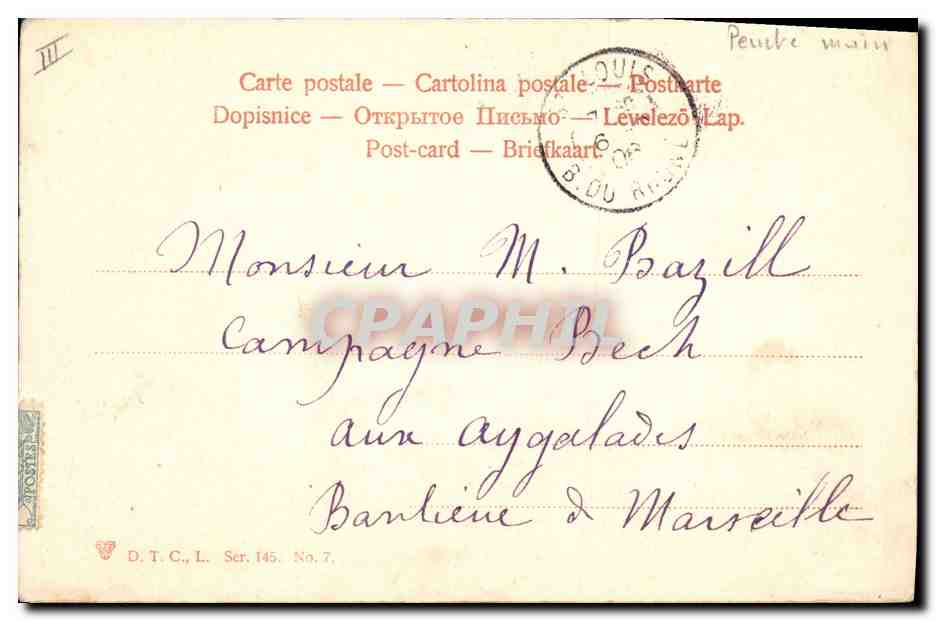 III
Peinte main
Carte postale — Cartolina postale — Postkarte
Dopisnice — Открытое Письмо — Levelezō-Lap.
Post-card — Briefkaart.
ST LOUIS
6
06
B. DU RHONE
Monsieur M. Bazill
CPAPHIL
Campagne Bech
aux aygalades
Banlieue de Marseille
POSTES
D. T. C., L. Ser. 145. No. 7.